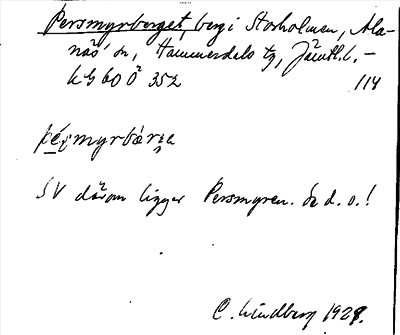 Persmyrberget, berg i Storholmen, Ala-
näs' sn, Hammerdals tg, Jämtl. l. -
kg 60 Ö 352 114
pérsmyrbærɛ
SV därom ligger Persmyren. Se d. o.!
C. Lindberg 1928.